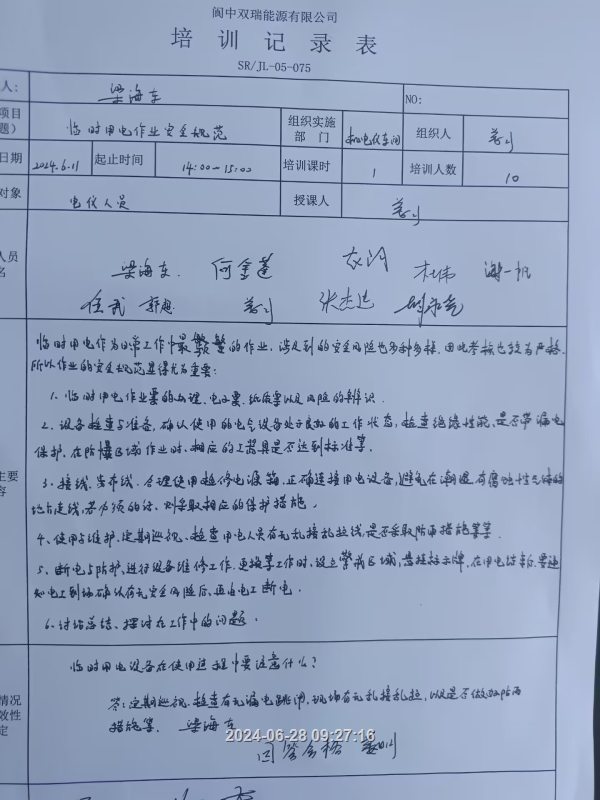 阆中双瑞能源有限公司
培训记录表
SR/JL-05-075
人: 梁海东 NO:
项目 题) 临时用电作业安全规范 组织实施部门 组织人
日期 2024.6.11 起止时间 14:00-15:00 培训课时 1 培训人数 10
对象 电仪人员 授课人
人员 名 梁海东. 何金莲 谢一帆
任武 郭思 张杰
临时用电作为日常工作中最繁繁的作业，涉及到的安全风险也多种多样，因此考核也较为严格.
所以作业的安全规范显得尤为重要:
1. 临时用电作业票的办理，电工票，纸质票以及风险的辨识.
2. 设备检查与准备，确认使用的电气设备处于良好的工作状态，检查绝缘性能、是否带漏电
保护，在防爆区域作业时，相应的工器具是否达到标准等.
主要 容 3. 接线、合理使用检修电源箱，正确连接用电设备，避免在潮湿有腐蚀性气体的
地方走线，则采取相应的保护措施。
4、使用与维护，定期巡视、检查用电人员有无乱接乱拉线，是否采取防雨措施等等.
5、断电与防护，进行设备维修工作、更换等工作时、设立警戒区域，悬挂标示牌，在用电结束后，要通
知电工到场确认有无安全风险后、再由电工断电.
6. 讨论总结、探讨在工作中的问题.
情况 效性 定 临时用电设备在使用过程中要注意什么?
答: 定期巡视、检查有无漏电跳闸，现场有无乱接乱拉，以及是否做好防雨
措施等. 梁海东
2024-06-28 09:27:16
回答合格